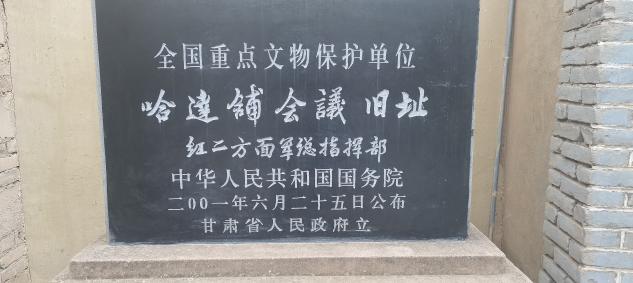 全国重点文物保护单位
哈達铺会議旧址
红二方面军总指挥部
中华人民共和国国务院
二00一年六月二十五日公布
甘肃省人民政府立